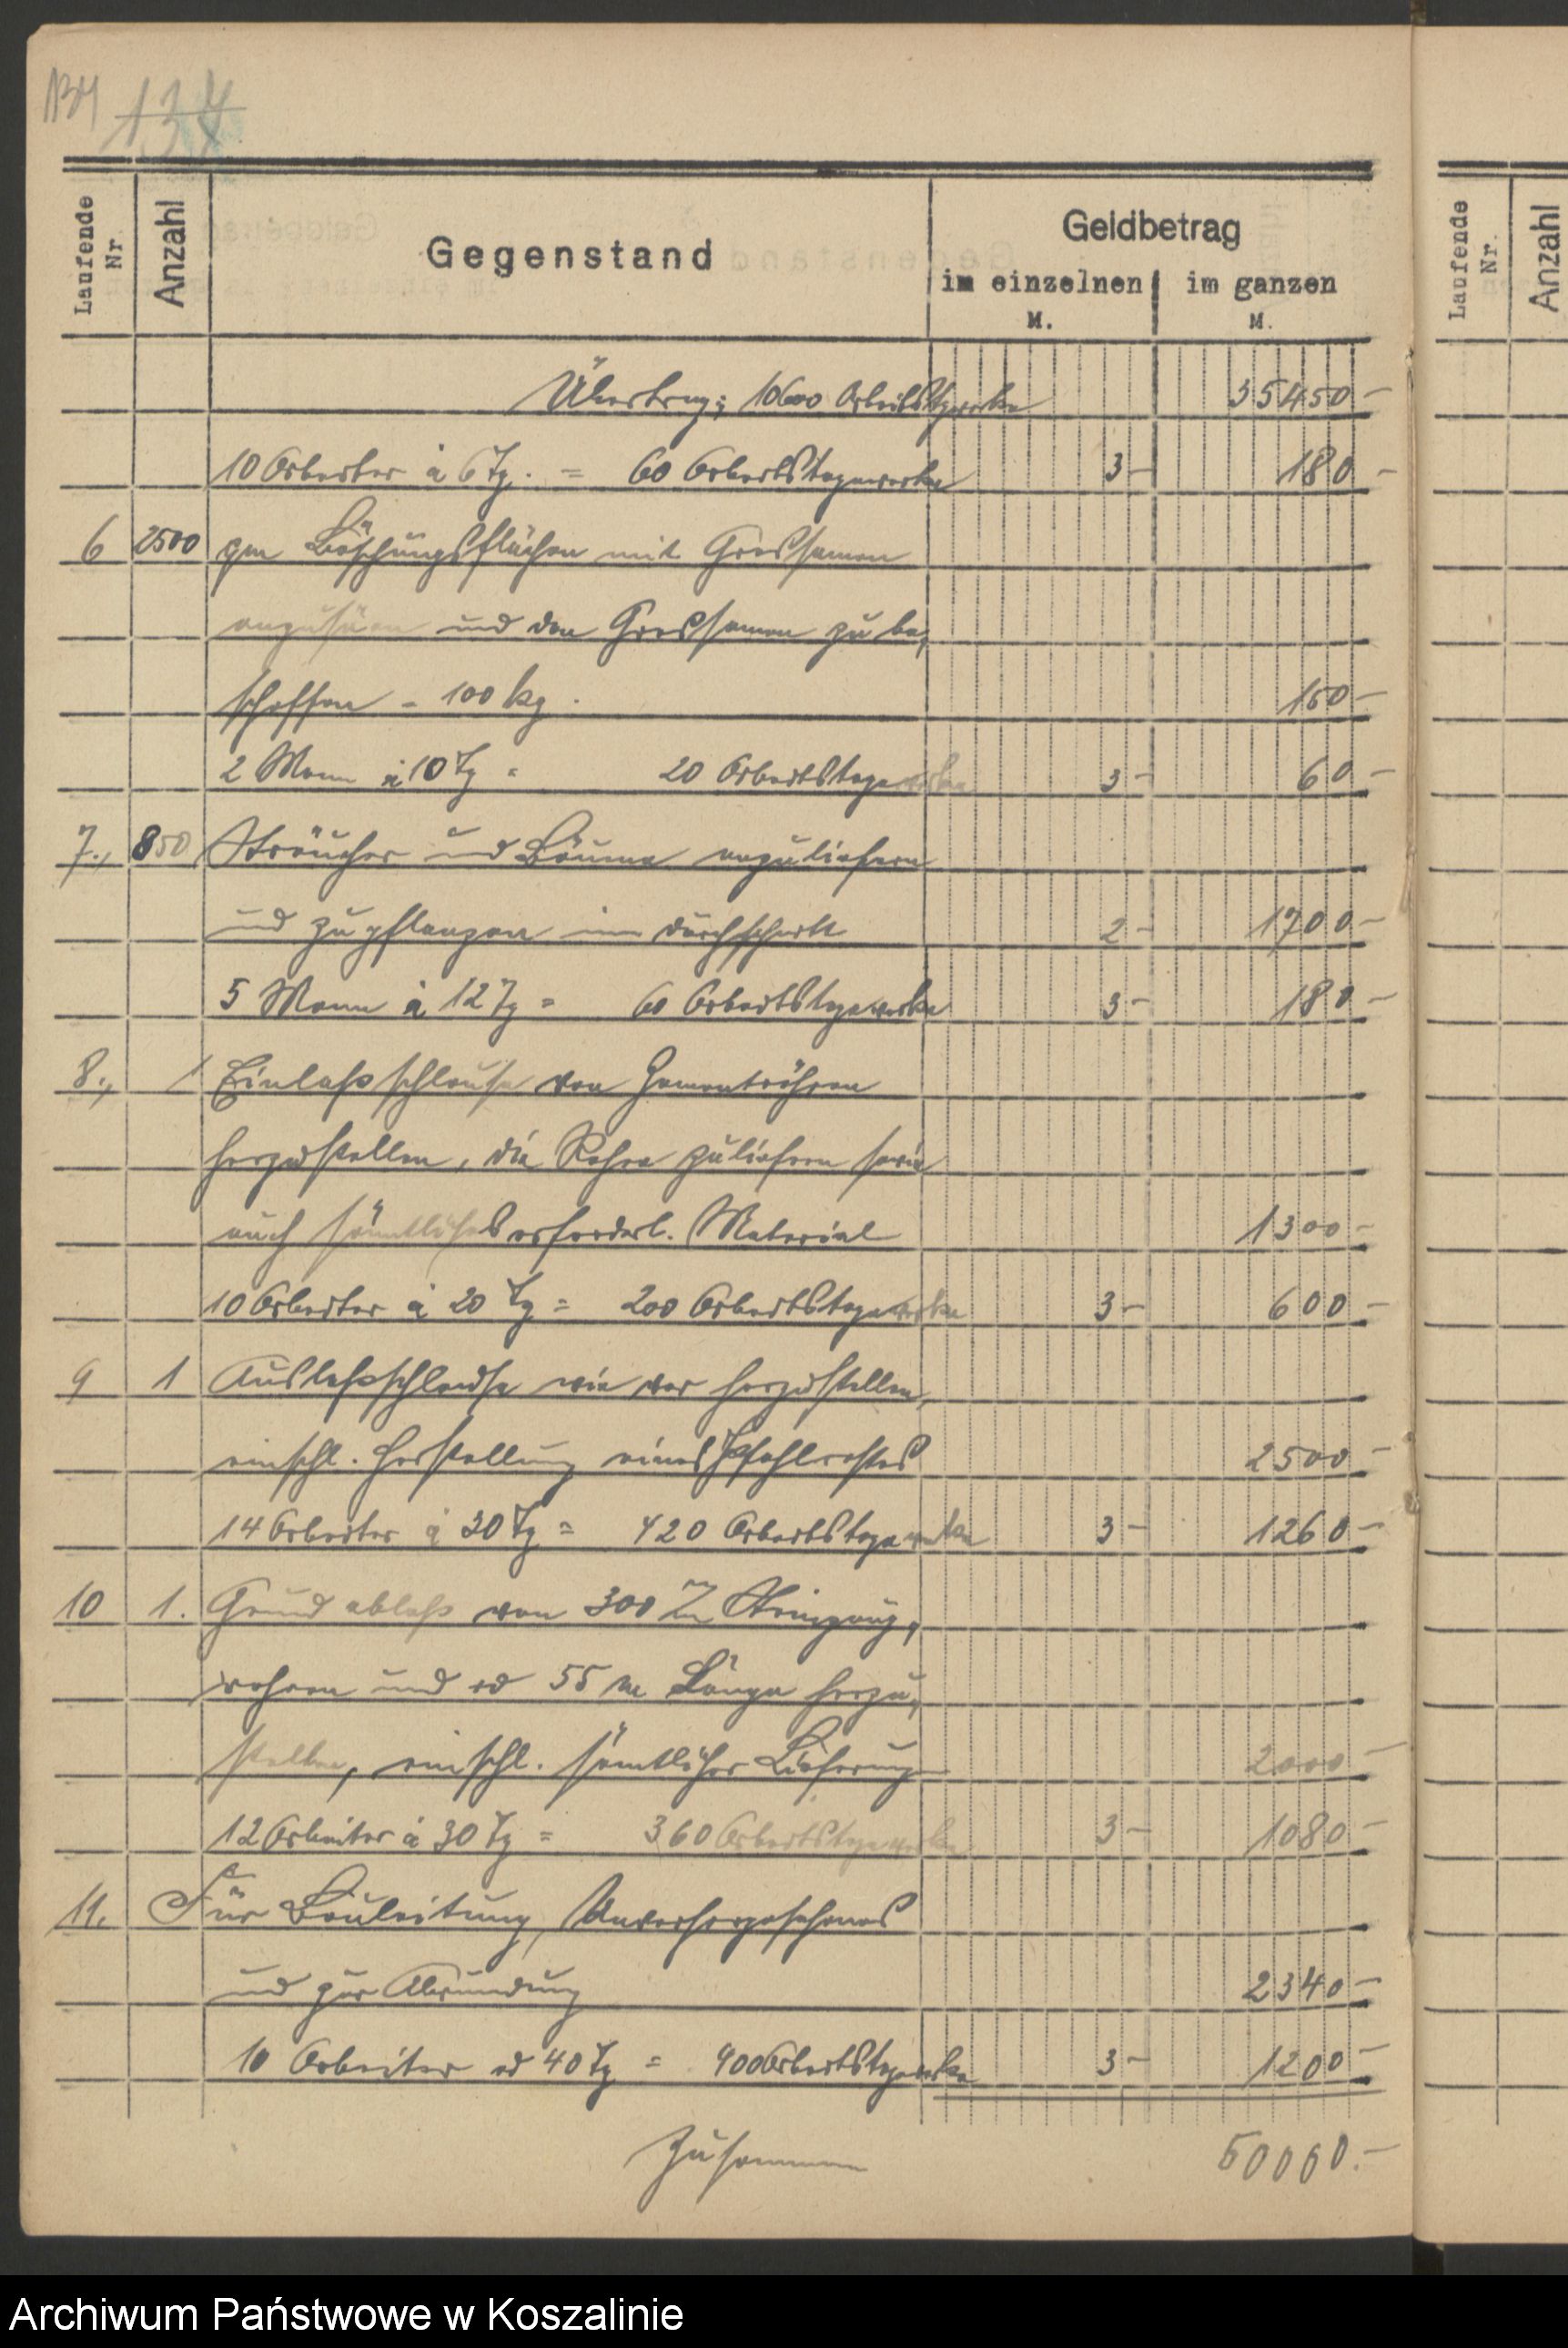 134 137
Laufende Nr. Anzahl Gegenstand Geldbetrag
im einzelnen im ganzen
M. M.
Übertrag: 10600 Arbeitstagewerke 35450 -
10 Arbeiter à 6 Tg. = 60 Arbeitstagewerke 3 - 180 -
6 2500 qm Böschungsflächen mit Grassamen
anzusäen und den Grassamen zu be,
schaffen = 100 kg. 150 -
2 Mann à 10 Tg = 20 Arbeitstagewerke 3 - 60 -
7., 850 Sträucher und Bäume anzuliefern
und zu pflanzen im durchschnitt 2 - 1700 -
5 Mann à 12 Tg = 60 Arbeitstagewerke 3 - 180 -
8., 1 Einlaßschleuse von Zementröhren
herzustellen, die Rohre zuliefern sowie
auch sämtliches erforderl. Material 1300 -
10 Arbeiter à 20 Tg = 200 Arbeitstagewerke 3 - 600 -
9 1 Auslaßschleuse wie vor herzustellen,
einschl. Herstellung eines Pfahlrostes 2500 -
14 Arbeiter à 30 Tg = 420 Arbeitstagewerke 3 - 1260 -
10 1. Grundablaß von 300 m/m Steinzeug,
rohren und rd 55 m Länge herzu,
stellen, einschl. sämtlicher Lieferung 2000 -
12 Arbeiter à 30 Tg = 360 Arbeitstagewerke 3 - 1080 -
11. Für Bauleitung, Unvorhergesehenes
und zur Abrundung 2340 -
10 Arbeiter rd 40 Tg = 400 Arbeitstagewerke 3 - 1200 -
Zusammen 50000.-
Laufende Nr. Anzahl
Archiwum Państwowe w Koszalinie